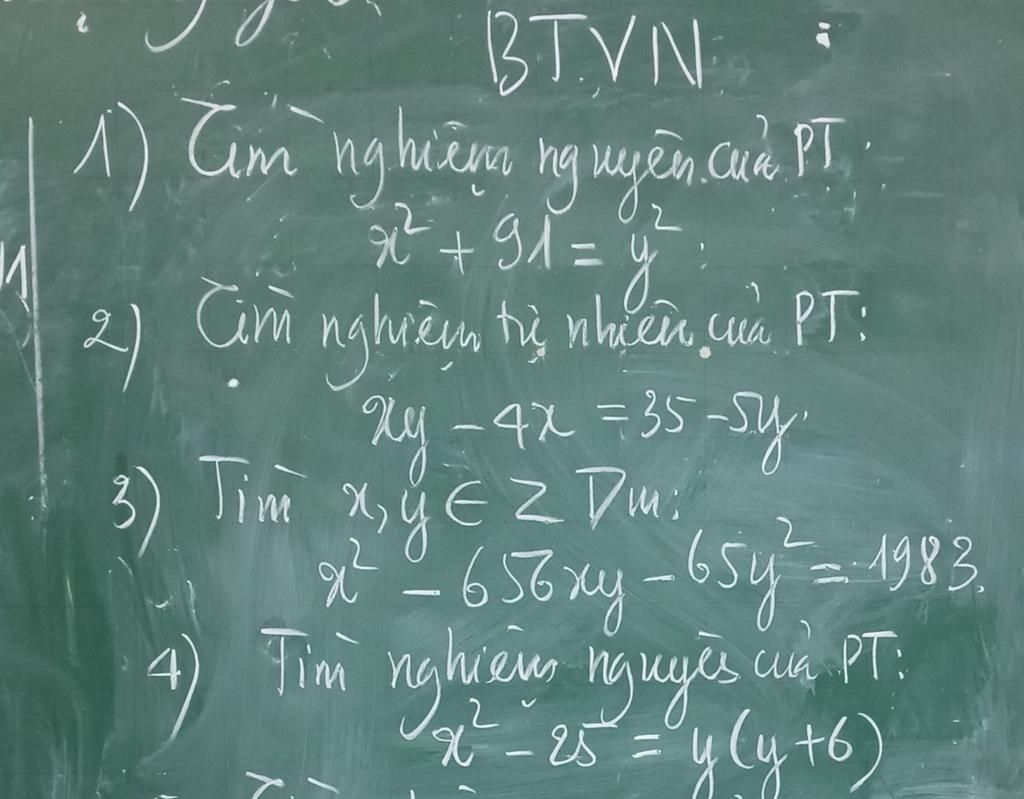 BTVN
1) Tìm nghiệm nguyên của PT:
x² + 91 = y²:
2) Tìm nghiệm tự nhiên của PT:
xy - 4x = 35 - 5y.
3) Tìm x, y ∈ Z Dm:
x² - 656xy - 65y² = 1983.
4) Tìm nghiệm nguyên của PT:
x² - 25 = y(y+6)